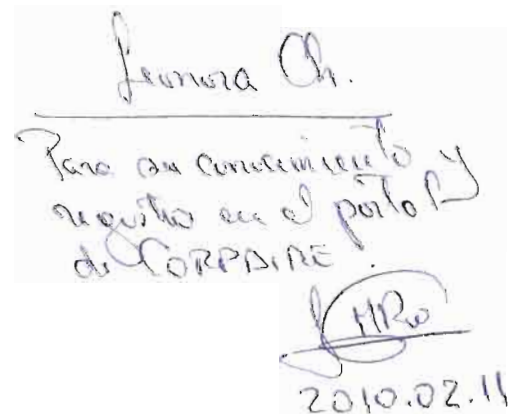 Leonora Ch.
Para su conocimiento y
registro en el portal
de CORPAIRE.
2010.02.11